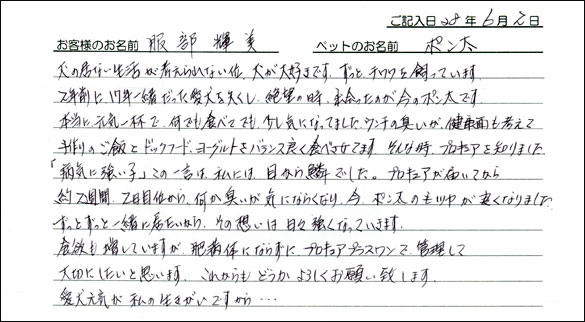 ご記入日 28年 6月 2日
お客様のお名前 服部 輝美 ペットのお名前 ポン太
犬の居ない生活が考えられない位、犬が大好きです。ずっとチワワを飼っています。
2年前に17年一緒だった愛犬を失くし、絶望の時、出会ったのが今のポン太です。
本当に元気一杯で、何でも食べてでも、少し気になってましたウンチの臭いが、健康面も考えて
手作りのご飯とドックフード、ヨーグルトをバランス良く食べさせてます。そんな時、プロキュアを知りました
「病気に強い子」この一言は、私には、目から鱗でした。プロキュアが届いてから
約2週間、2日目位から、何か臭いが気にならくなり、今、ポン太の毛ツヤが良くなりました
ずっとずっと一緒に居たいなり、その想いは日々強くなっていきます。
食欲も増していますが、肥満体にならずに、プロキュアプラスワンで、管理して
大切にしたいと思います。これからもどうかよろしくお願い致します。
愛犬元気が私の生きがいですから…